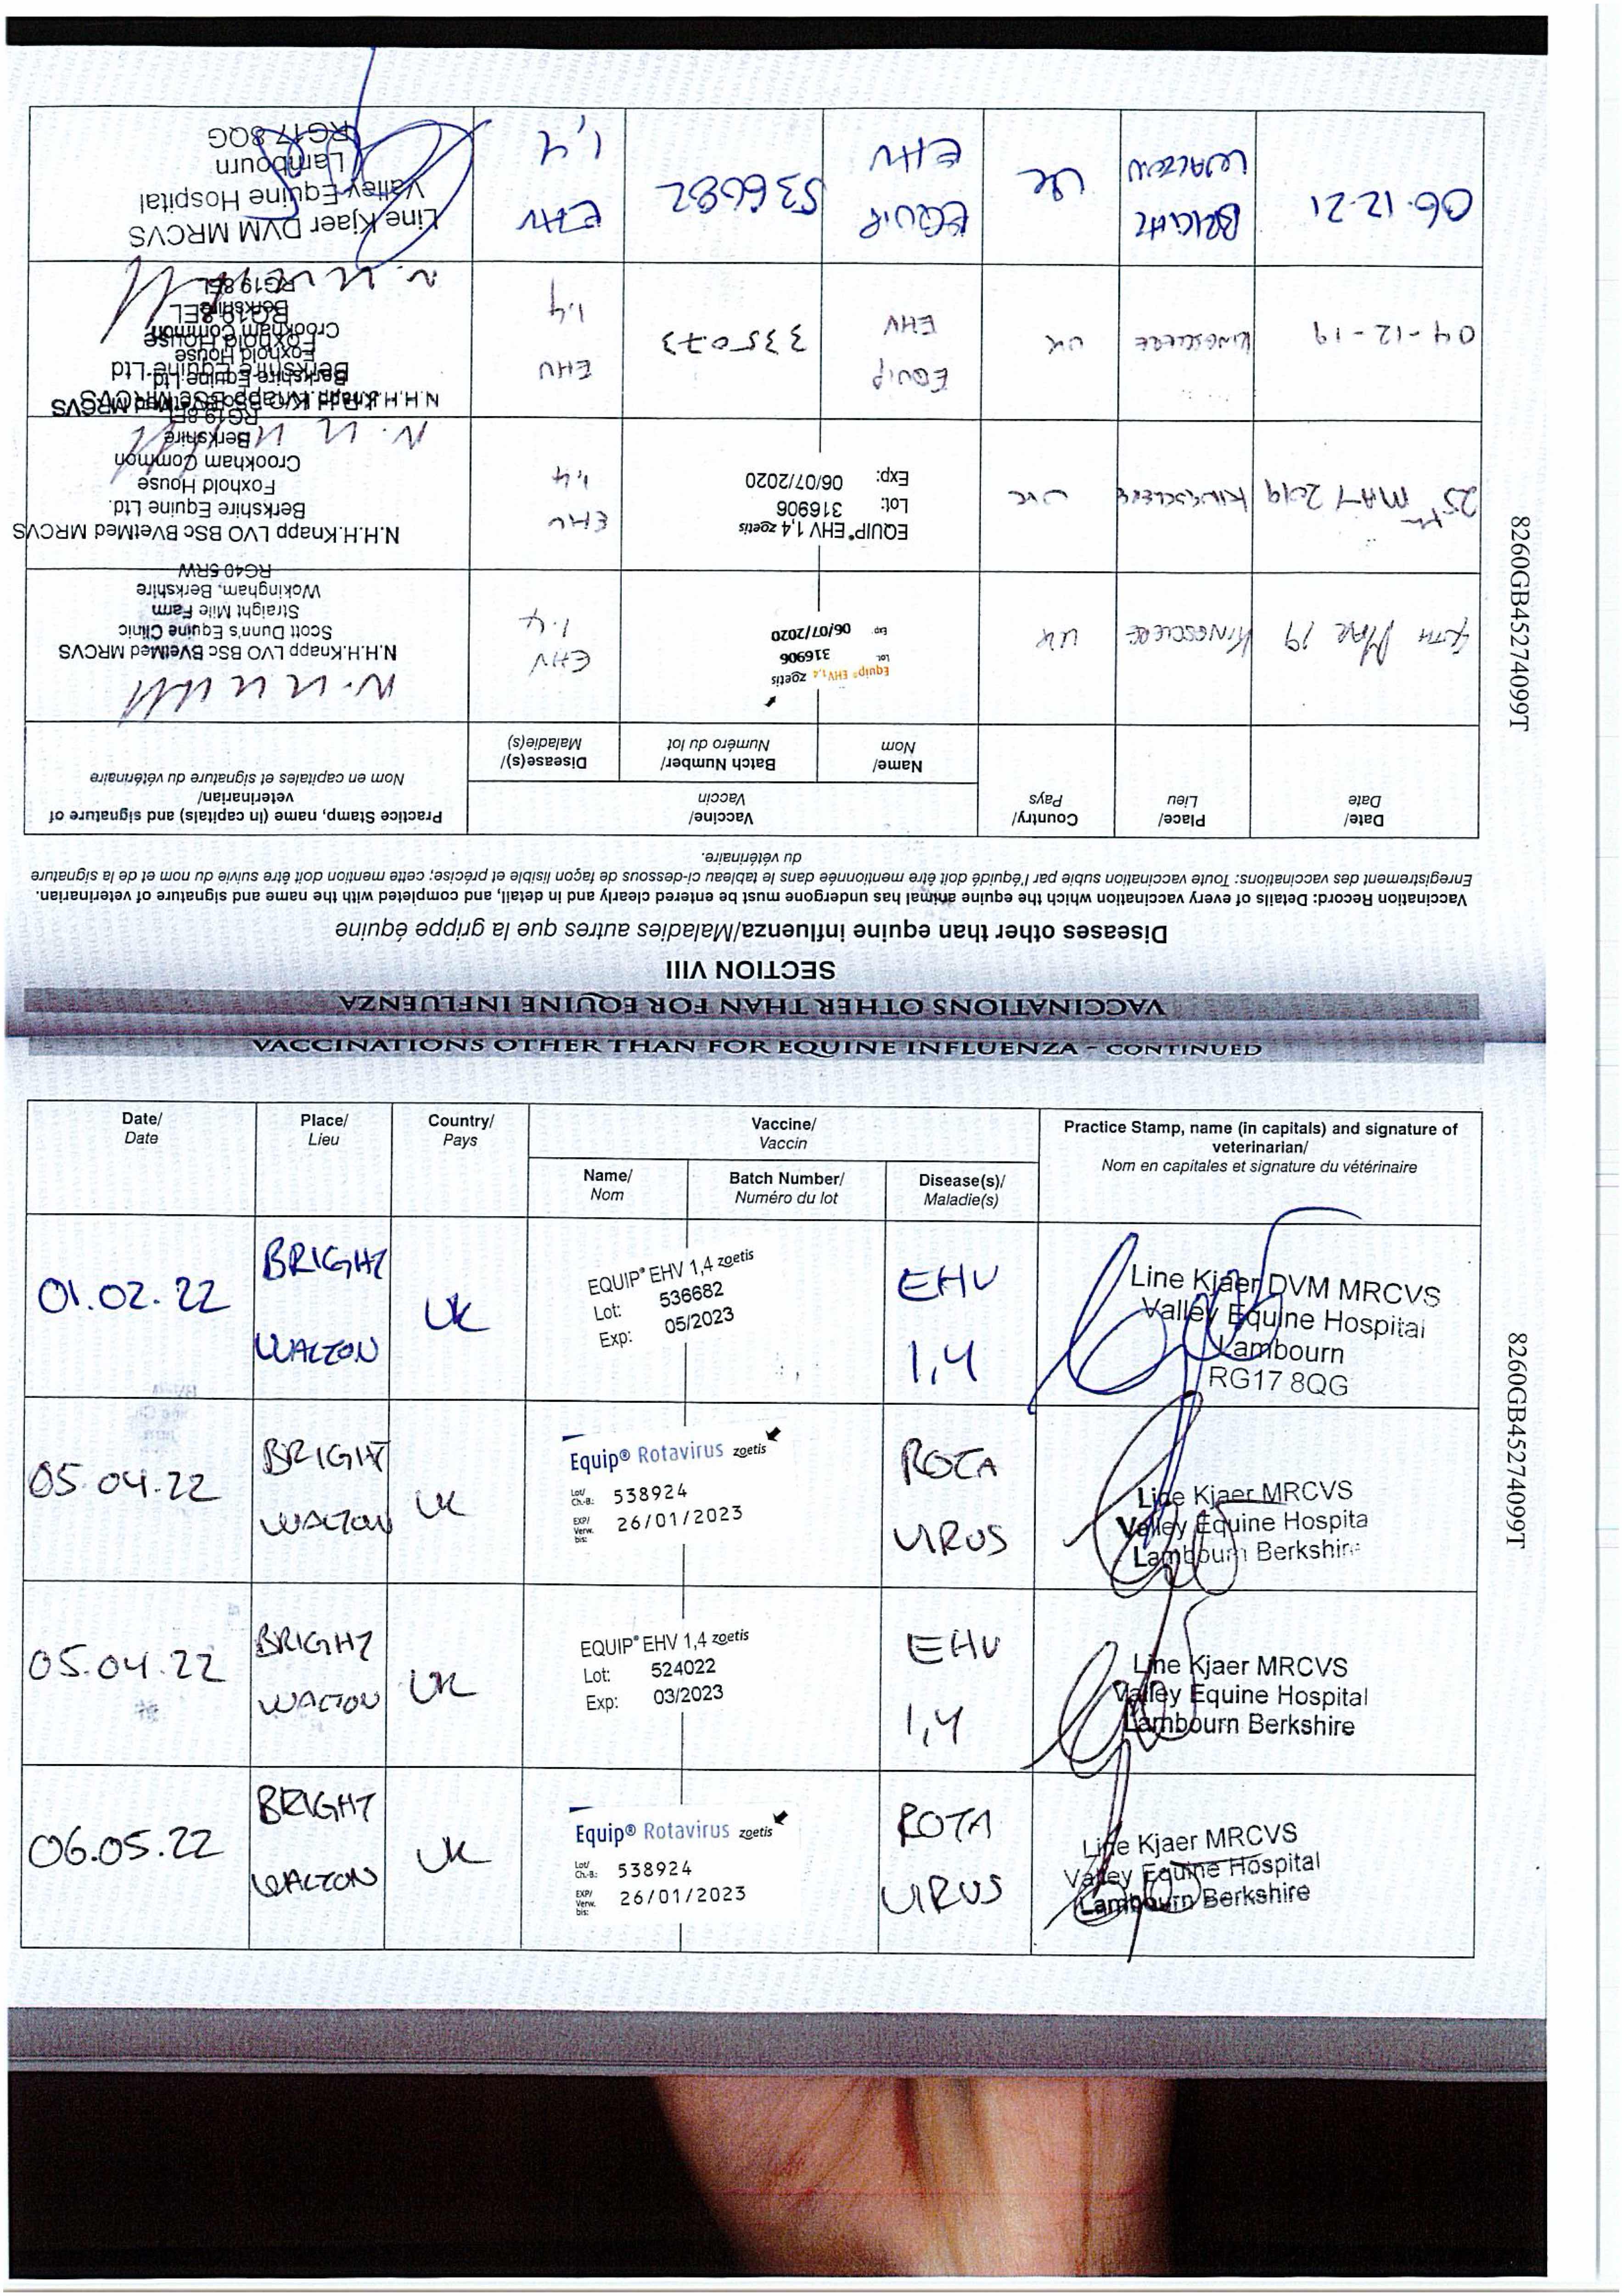 VACCINATIONS OTHER THAN FOR EQUINE INFLUENZA
SECTION VIII
Diseases other than equine influenza/Maladies autres que la grippe équine
Vaccination Record: Details of every vaccination which the equine animal has undergone must be entered clearly and in detail, and completed with the name and signature of veterinarian.
Enregistrement des vaccinations: Toute vaccination subie par l'équidé doit être mentionnée dans le tableau ci-dessous de façon lisible et précise; cette mention doit être suivie du nom et de la signature
du vétérinaire.
Date/
Date
Place/
Lieu
Country/
Pays
Vaccine/
Vaccin
Name/
Nom
Batch Number/
Numéro du lot
Disease(s)/
Maladie(s)
Practice Stamp, name (in capitals) and signature of
veterinarian/
Nom en capitales et signature du vétérinaire
MAR 19
KINGSCLERE
UK
Equip® EHV 1,4 zoetis
Lot 316906
Exp 06/07/2020
EHV
1.4
N.H.H.Knapp LVO BSc BVetMed MRCVS
Scott Dunn's Equine Clinic
Straight Mile Farm
Wokingham, Berkshire
RG40 5RW
25th MAY 2019
KINGSCLERE
UK
EQUIP® EHV 1,4 zoetis
Lot: 316906
Exp: 06/07/2020
EHV
1,4
N.H.H.Knapp LVO BSc BVetMed MRCVS
Berkshire Equine Ltd.
Foxhold House
Crookham Common
Berkshire
RG19 8EL
04-12-19
KINGSCLERE
UK
EQUIP
EHV
335073
EHV
1.4
Berkshire Equine Ltd
Foxhold House
Crookham Common
Berkshire
RG19 8EL
06.12.21
BRIGHT
WALTON
UK
EQUIP
EHV
536682
EHV
1,4
Line Kjaer DVM MRCVS
Valley Equine Hospital
Lambourn
RG17 8QG
8260GB45274099T
VACCINATIONS OTHER THAN FOR EQUINE INFLUENZA - CONTINUED
Date/
Date
Place/
Lieu
Country/
Pays
Vaccine/
Vaccin
Name/
Nom
Batch Number/
Numéro du lot
Disease(s)/
Maladie(s)
Practice Stamp, name (in capitals) and signature of
veterinarian/
Nom en capitales et signature du vétérinaire
01.02.22
BRIGHT
WALTON
UK
EQUIP® EHV 1,4 zoetis
Lot: 536682
Exp: 05/2023
EHV
1,4
Line Kjaer DVM MRCVS
Valley Equine Hospital
Lambourn
RG17 8QG
05.04.22
BRIGHT
WALTON
UK
Equip® Rotavirus zoetis
Lot/ Ch.-B.: 538924
EXP/ Verw. bis: 26/01/2023
ROTA
VIRUS
Line Kjaer MRCVS
Valley Equine Hospita
Lambourn Berkshire
05.04.22
BRIGHT
WALTON
UK
EQUIP® EHV 1,4 zoetis
Lot: 524022
Exp: 03/2023
EHV
1,4
Line Kjaer MRCVS
Valley Equine Hospital
Lambourn Berkshire
06.05.22
BRIGHT
WALTON
UK
Equip® Rotavirus zoetis
Lot/ Ch.-B.: 538924
EXP/ Verw. bis: 26/01/2023
ROTA
VIRUS
Line Kjaer MRCVS
Valley Equine Hospital
Lambourn Berkshire
8260GB45274099T